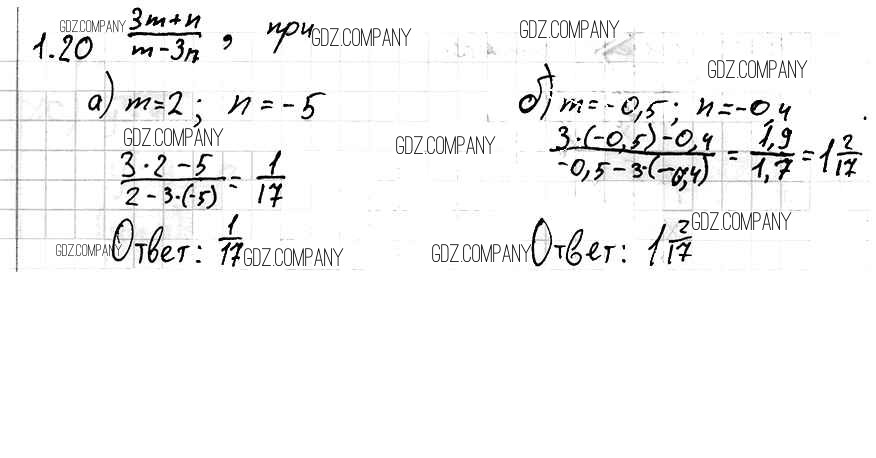 1.20 (3m+n)/(m-3n), при
а) m=2; n=-5
(3·2-5)/(2-3·(-5)) = 1/17
Ответ: 1/17
б) m=-0,5; n=-0,4
(3·(-0,5)-0,4)/(-0,5-3·(-0,4)) = 1,9/1,7 = 1 2/17
Ответ: 1 2/17
GDZ.COMPANY
GDZ.COMPANY
GDZ.COMPANY
GDZ.COMPANY
GDZ.COMPANY
GDZ.COMPANY
GDZ.COMPANY
GDZ.COMPANY
GDZ.COMPANY
GDZ.COMPANY